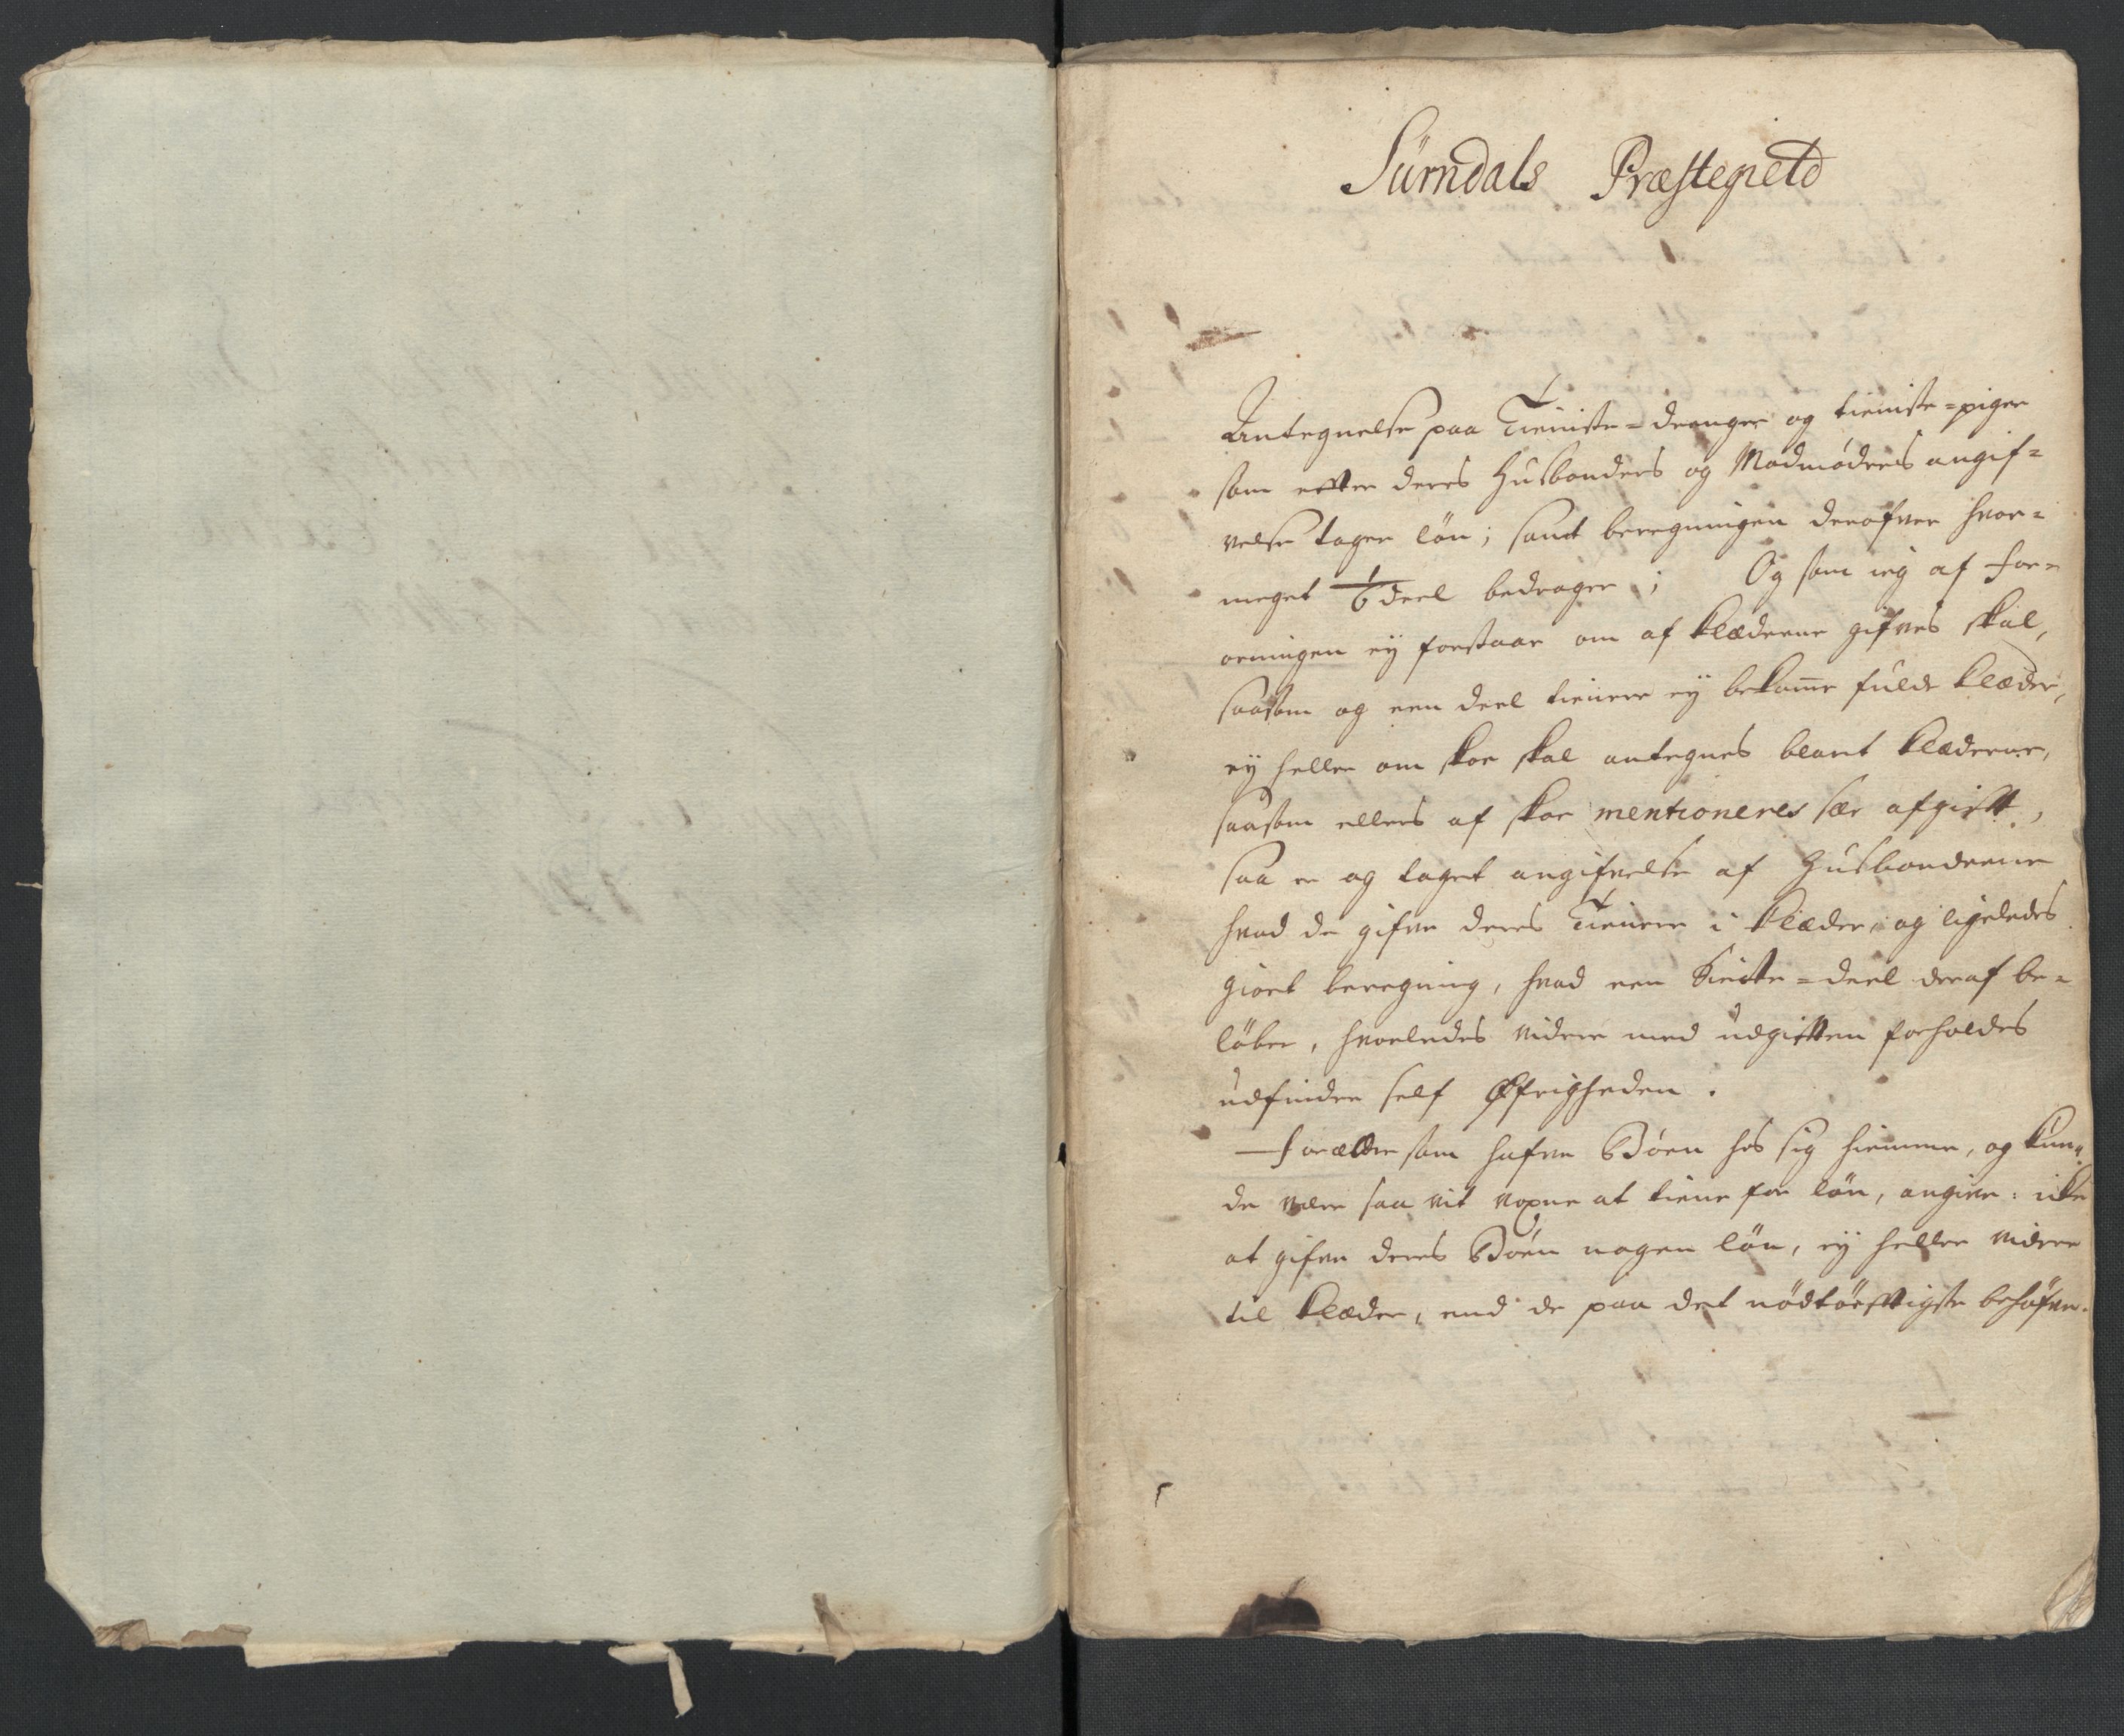 Surndals Præstegield
Antegnelse paa Tieniste=drenger og tieniste=piger
som efter deres Husbonders og Madmødres angif=
velse tager løn; samt beregningen derofver hvor=
meget 1/6 deel bedrager; Og som ieg af For=
ordningen ey forstaar om af klæderne gifves skal,
saasom og een deel tienere ey bekomme fulde klæder,
ey heller om skoe skal antegnes blant klæderne,
saasom ellers af skoe mentioneres sær afgifft,
saa er og taget angifvelse af Husbonderne
hvad de gifve deres Tienere i klæder, og ligeledes
giort beregning, hvad een Siette=deel deraf be=
løber, hvorledes videre med udgifften forholdes
udfinder self Øfrigheden.
Forældre som hafve Børn hos sig hiemme, og kun=
de være saa vit voxne at tiene for løn, angive: icke
at gifve deres Børn nogen løn, ey heller videre
til klæder, end de paa det nødtørfftigste behøfve.